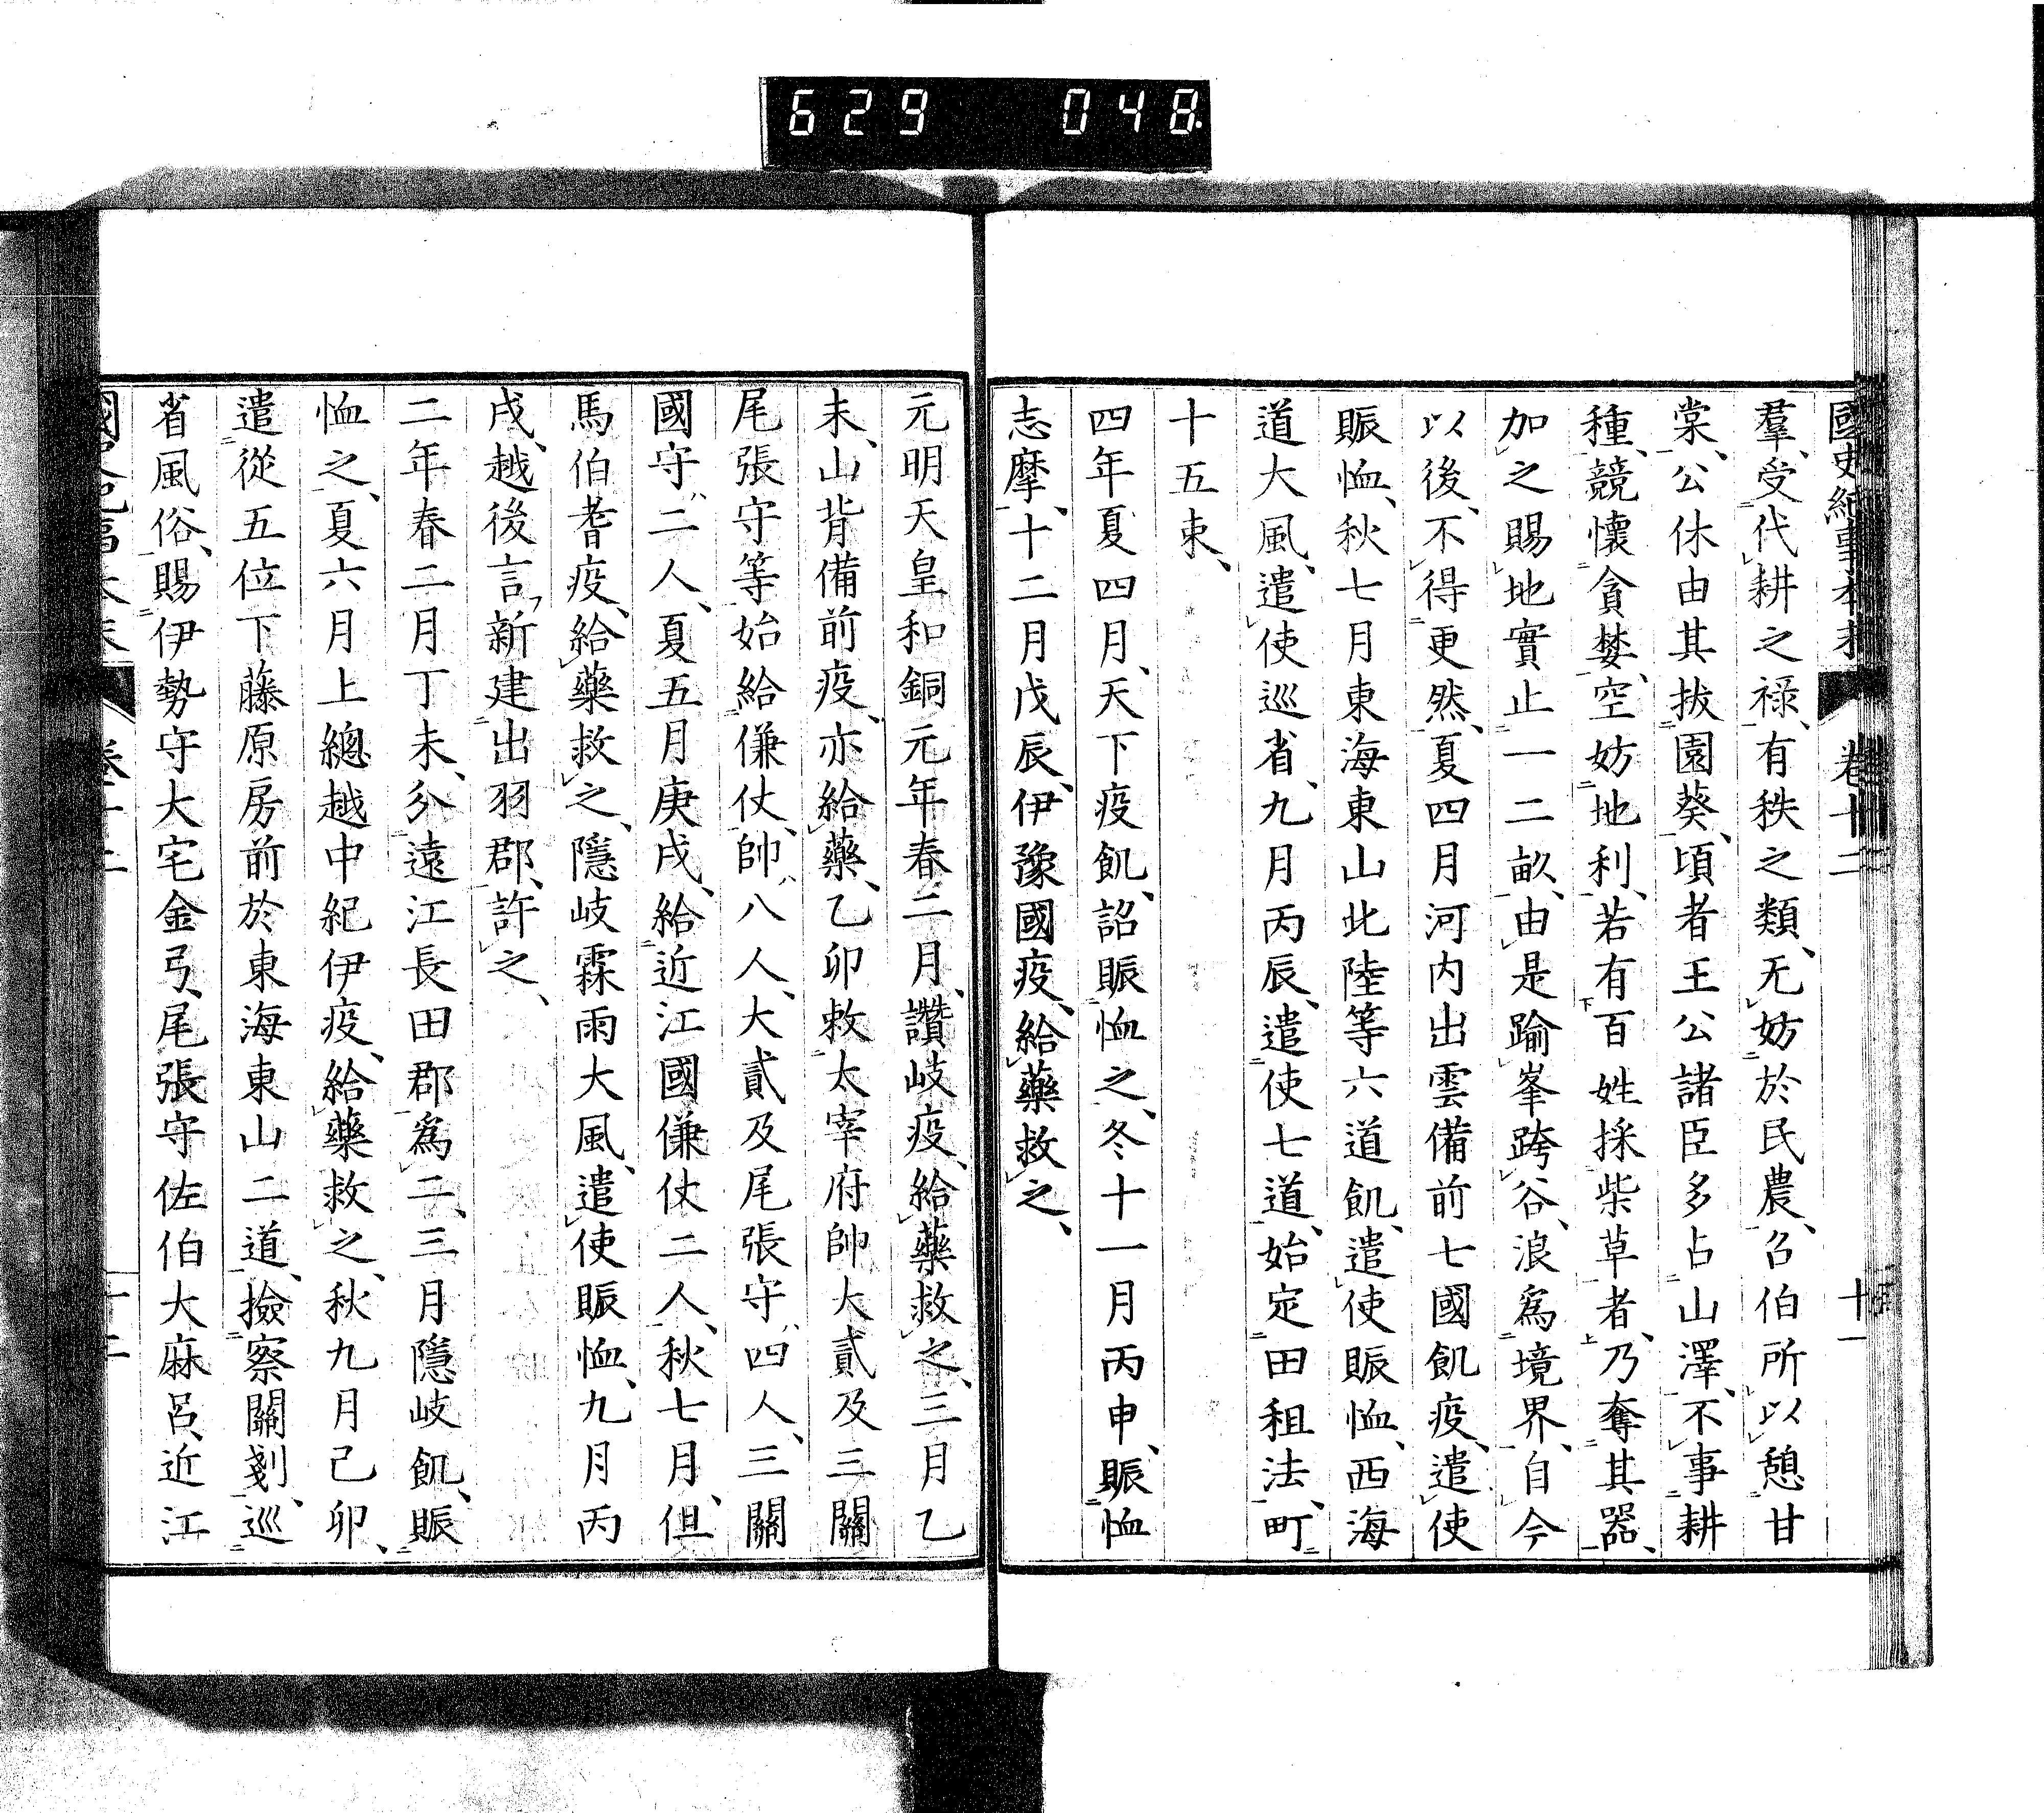 629 048
國史紀事本末 卷十二 十一
羣、受代耕之祿、有秩之類、无妨於民農、召伯所以憩甘
棠、公休由其拔園葵、頃者王公諸臣多占山澤、不事耕
種、競懷貪婪、空妨地利、若有百姓採柴草者、乃奪其器、
加之賜地實止一二畝、由是踰峯跨谷、浪爲境界、自今
以後、不得更然、夏四月河內出雲備前七國飢疫、遣使
賑恤、秋七月東海東山北陸等六道飢、遣使賑恤、西海
道大風、遣使巡省、九月丙辰、遣使七道、始定田租法、町
十五束、
四年夏四月、天下疫飢、詔賑恤之、冬十一月丙申、賑恤
志摩、十二月戊辰、伊豫國疫、給藥救之、
元明天皇和銅元年春二月、讚岐疫、給藥救之、三月乙
未、山背備前疫、亦給藥、乙卯敕太宰府帥大貳及三關
尾張守等始給傔仗、帥八人、大貳及尾張守四人、三關
國守二人、夏五月庚戌、給近江國傔仗二人、秋七月、但
馬伯耆疫、給藥救之、隱岐霖雨大風、遣使賑恤、九月丙
戌、越後言、新建出羽郡、許之、
二年春二月丁未、分遠江長田郡爲二、三月隱岐飢、賑
恤之、夏六月上總越中紀伊疫、給藥救之、秋九月己卯、
遣從五位下藤原房前於東海東山二道、撿察關剗、巡
省風俗、賜伊勢守大宅金弓、尾張守佐伯大麻呂、近江
卷十二 十二